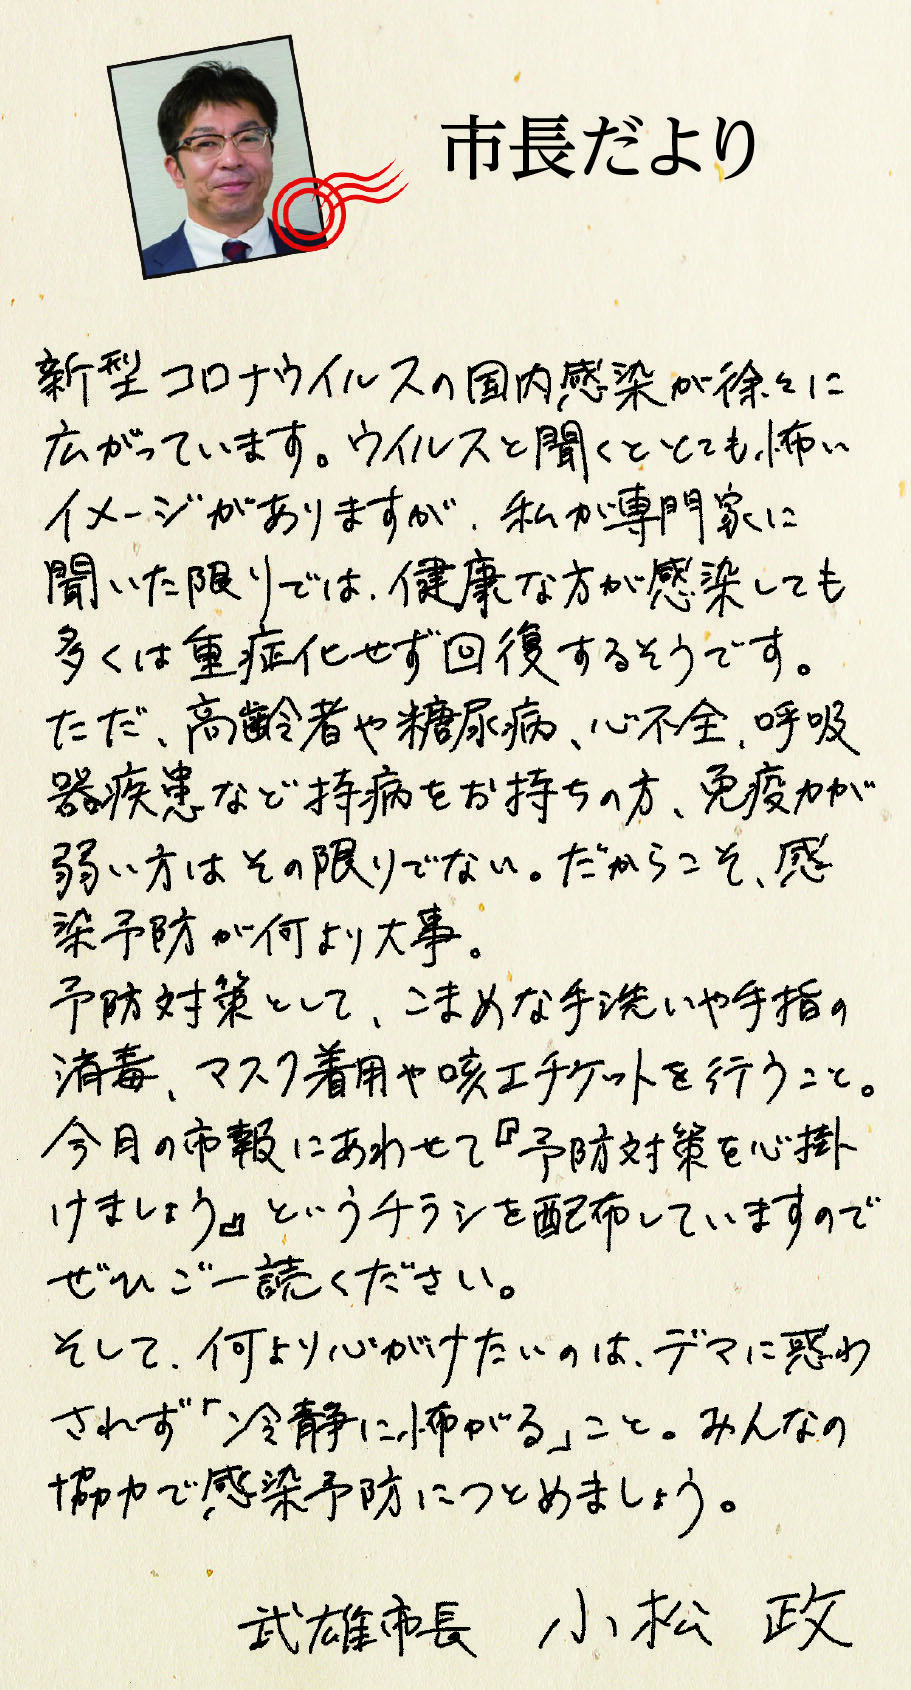 市長だより
新型コロナウイルスの国内感染が徐々に
広がっています。ウイルスと聞くととても怖い
イメージがありますが、私が専門家に
聞いた限りでは、健康な方が感染しても
多くは重症化せず回復するそうです。
ただ、高齢者や糖尿病、心不全、呼吸
器疾患など持病をお持ちの方、免疫力が
弱い方はその限りでない。だからこそ、感
染予防が何より大事。
予防対策として、こまめな手洗いや手指の
消毒、マスク着用や咳エチケットを行うこと。
今月の市報にあわせて『予防対策を心掛
けましょう』というチラシを配布していますので
ぜひご一読ください。
そして、何より心がけたいのは、デマに惑わ
されず「冷静に怖がる」こと。みんなの
協力で感染予防につとめましょう。
武雄市長 小松 政